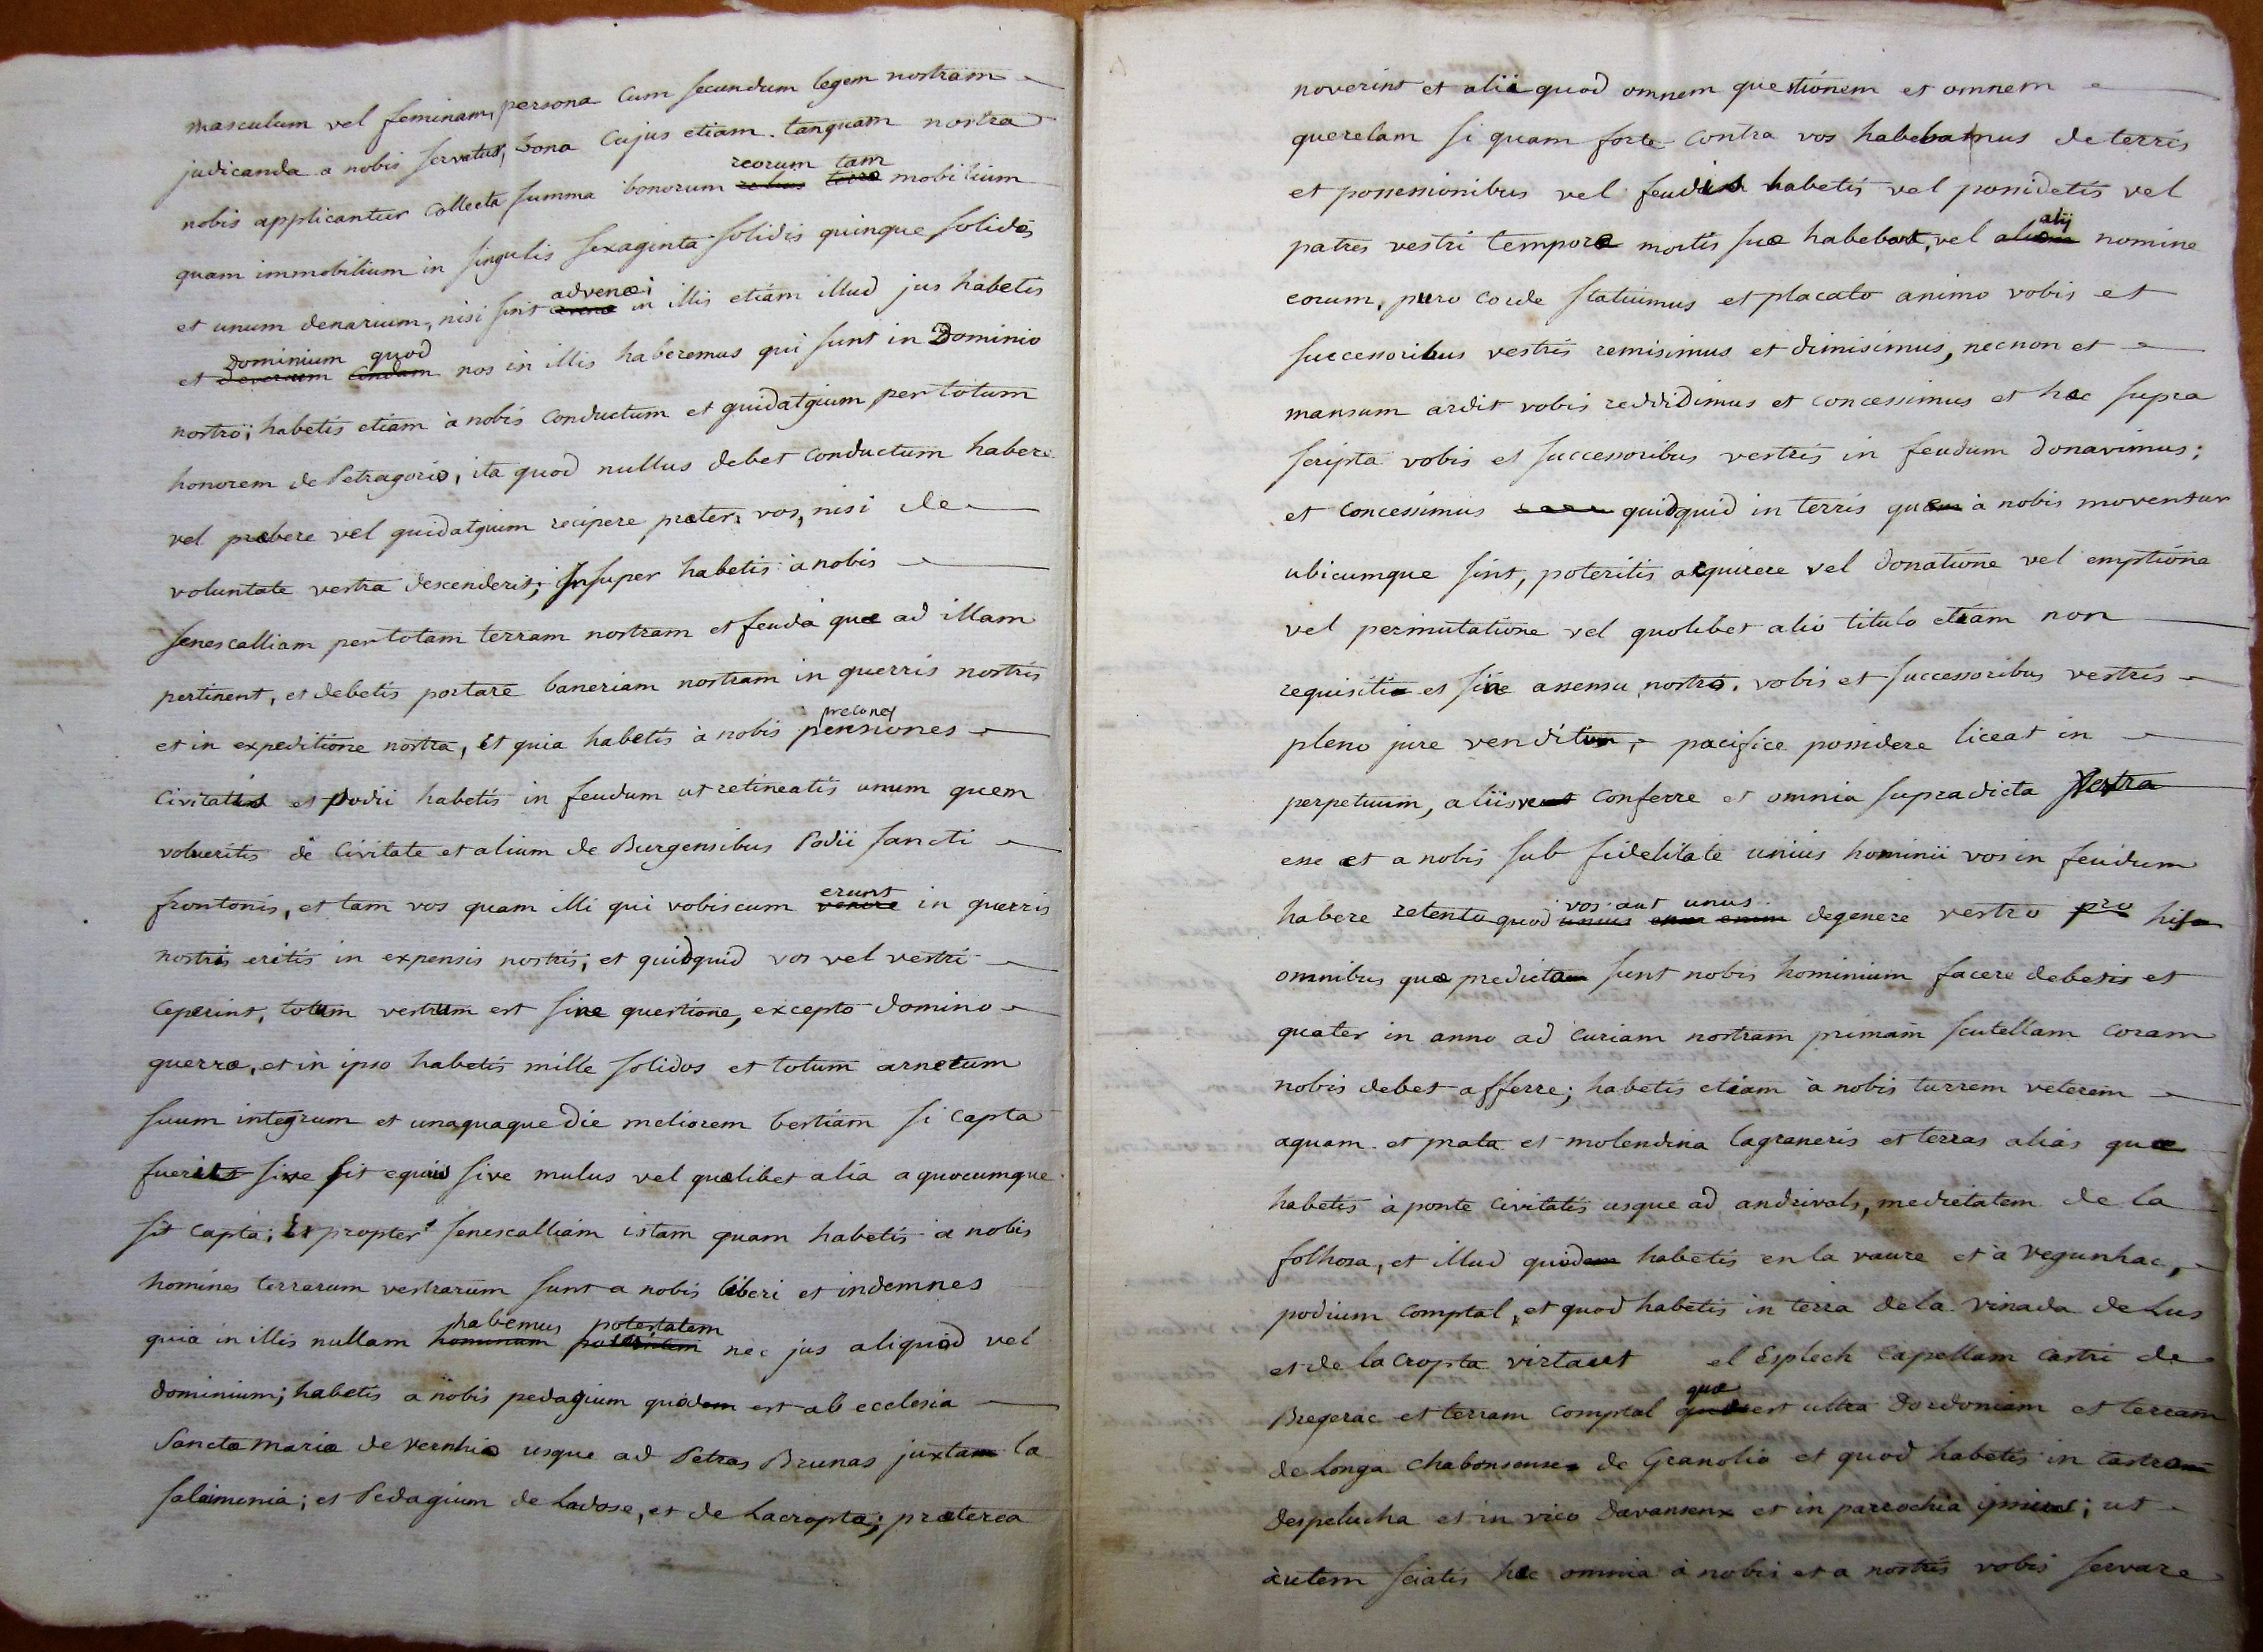 masculum vel feminam, persona cum secundum legem nostram
judicanda a nobis servatur, bona cujus etiam tanquam nostra
nobis applicantur collecta summa bonorum reorum tam mobilium
quam immobilium in singulis sexaginta solidis quinque solidos
et unum denarium, nisi sint advenæ; in illis etiam illud jus habetis
et dominium quod nos in illis haberemus qui sunt in Dominio
nostro; habetis etiam à nobis conductum et guidatgium per totum
honorem de Petragorio, ita quod nullus debet conductum habere
vel præbere vel guidatgium recipere præter vos, nisi de
voluntate vestra descenderit; Insuper habetis à nobis
senescalliam per totam terram nostram et feuda quæ ad illam
pertinent, et debetis portare baneriam nostram in guerris nostris
et in expeditione nostra, et quia habetis à nobis pensiones precones
civitatis et podii habetis in feudum ut retineatis unum quem
volueritis de Civitate et alium de Burgensibus Podii Sancti
frontonis, et tam vos quam illi qui vobiscum erunt in guerris
nostris eritis in expensis nostris, et quidquid vos vel vestri
ceperint, totum vestrum est sine questione, excepto domino
guerræ, et in ipso habetis mille solidos et totum arnetum
suum integrum et unaquaque die meliorem bestiam si capta
fuerit sive sit equus sive mulus vel quælibet alia a quocumque
sit capta; Et propter senescalliam istam quam habetis à nobis
homines terrarum vestrarum sunt a nobis liberi et indemnes
quia in illis nullam habemus potestatem nec jus aliquod vel
dominium; habetis a nobis pedagium quod est ab ecclesia
Sanctæ Mariæ de vernhio usque ad Petras Brunas juxta la
salaimonia; et Pedagium de Ladose, et de Lacropta; præterea
noverint et alii quod omnem questionem et omnem
querelam si quam forte contra vos habebamus de terris
et possessionibus vel feudis habetis vel possidetis vel
patres vestri tempore mortis suæ habebant, vel alij nomine
eorum, puro corde statuimus et placato animo vobis et
successoribus vestris remisimus et dimisimus, necnon et
mansum ardit vobis reddidimus et concessimus et hæc supra
scripta vobis et successoribus vestris in feudum donavimus;
et concessimus quidquid in terris quæ à nobis moventur
ubicumque sint, poteritis acquirere vel donatione vel emptione
vel permutatione vel quolibet alio titulo etiam non
requisitio et sine assensu nostro, vobis et successoribus vestris
pleno jure venditum, pacifice possidere liceat in
perpetuum, aliisve conferre et omnia supradicta vestra
esse et a nobis sub fidelitate unius hominii vos in feudum
habere retento quod vos aut unus de genere vestro pro his
omnibus quæ predicta sunt nobis hominium facere debetis et
quater in anno ad curiam nostram primam scutellam coram
nobis debet afferre; habetis etiam à nobis turrem veterem
aquam et prata et molendina lagraneris et terras alias quæ
habetis à ponte civitatis usque ad andrivals, medietatem de la
folhosa, et illud quod habetis en la vaure et à vegunhac,
podium comptal, et quod habetis in terra de la vinada de Lus
et de lacropta virtaut el Esplech capellam castri de
Bregerac et terram comptal quæ est ultra Dordoniam et terram
de Longa chabonseuses de Granolio et quod habetis in castro
despelucha et in vico Davansenx et in parrochia ipsius; ut
autem sciatis hæc omnia à nobis et a nostris vobis servare